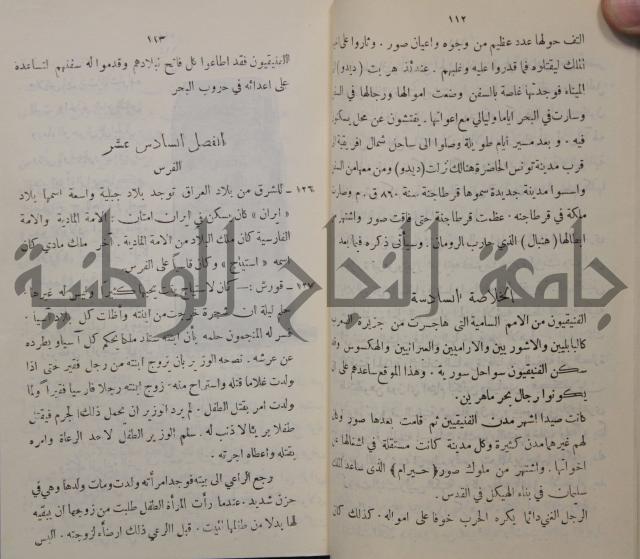 ١١٢
التف حولها عدد عظيم من وجوه واعيان صور . وثاروا على
الملك ليقتلوه فما قدروا عليه وغلبهم . عندئذ هربت ( ديدو )
الميناء فوجدتها غاصة بالسفن وضعت اموالها ورجالها في
وسارت في البحر اياما وليالي مع اعوانها . يفتشون عن محل يسكنون
فيه . وبعد مسير أيام طويلة وصلوا الى ساحل شمال افريقية
قرب مدينة تونس الحاضرة هنالك نزلت (ديدو) ومن معها من
واسسوا مدينة جديدة سموها قرطاجنة سنة ٨٦٠ ق . م وصارت
ملكة في قرطاجنه . عظمت قرطاجنة حتى فاقت صور واشتهر
ابطالها ( هنبال ) الذي حارب الرومان . وسيأتي ذكره فيما بعد
الخلاصة السادسة
الفنيقيون من الامم السامية التي هاجرت من جزيرة العرب
كالبابليين والاشوريين والاراميين والعبرانيين والهكسوس
سكن الفنيقيون سواحل سورية . وهذا الموقع ساعدهم على
يكونوا رجال بحر ماهرين .
كانت صيدا اشهر مدن الفنيقيين ثم قامت بعدها صور
لهم غيرهما مدن كثيرة وكل مدينة كانت مستقلة في اشغالها عن
اخواتها . واشتهر من ملوك صور ( حيرام ) الذى ساعد الملك
سليمان في بناء الهيكل في القدس .
الرجل الغني دائما يكره الحرب خوفا على امواله . كذلك كان
١١٣
الفنيقيون فقد اطاعوا كل فاتح لبلادهم وقدموا له سفنهم لتساعده
على اعدائه في حروب البحر
الفصل السادس عشر
الفرس
١٣٦ – للشرق من بلاد العراق توجد بلاد جبلية واسعة اسمها بلاد
« ايران » كان يسكن في ايران امتان : الامة المادية والامة
الفارسية كان ملك البلاد من الامة المادية . آخر ملك مادي كان
اسمه « استياج » وكان قاسياً على الفرس
١٣٧ – قورش : – كان لاستياج بنت يحبها كثيرا وليس له غيرها .
حلم ليلة ان شجرة خرجت من ابنته واظلت كل بلاد آسيا .
فسر له المنجمون حلمه بأن ابنته ستلد ملكا يحكم كل آسيا و يطرده
عن عرشه . نصحه الوزير بان يزوج ابنته من رجل فقير حتى اذا
ولدت غلاما قتله واستراح منه . زوج ابنته رجلا فارسيا فقيراً ولما
ولدت امر بقتل الطفل . لم يرد الوزير ان يحمل ذلك الجرم فيقتل
طفلا بريئا لا ذنب له . سلم الوزير الطفل لاحد الرعاة وامره
بقتله واعطاه اجرته .
رجع الراعي الى بيته فوجد امرأته ولدت ومات ولدها وهي في
حزن شديد . عندما رأت المرأة الطفل طلبت من زوجها ان يبقيه
لها بدلا من طفلها الميت . قبل الراعي ذلك ارضاءً لزوجته . البس
جامعة النجاح الوطنية